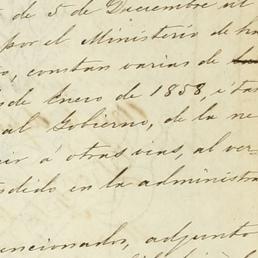 de 5 de Diciembre al
por el Ministerio de ha
constan varias de
de Enero de 1858, i
al Gobierno, de la ne
rir á otras vias, al ver
ndido en la administra
encionados, adjunto